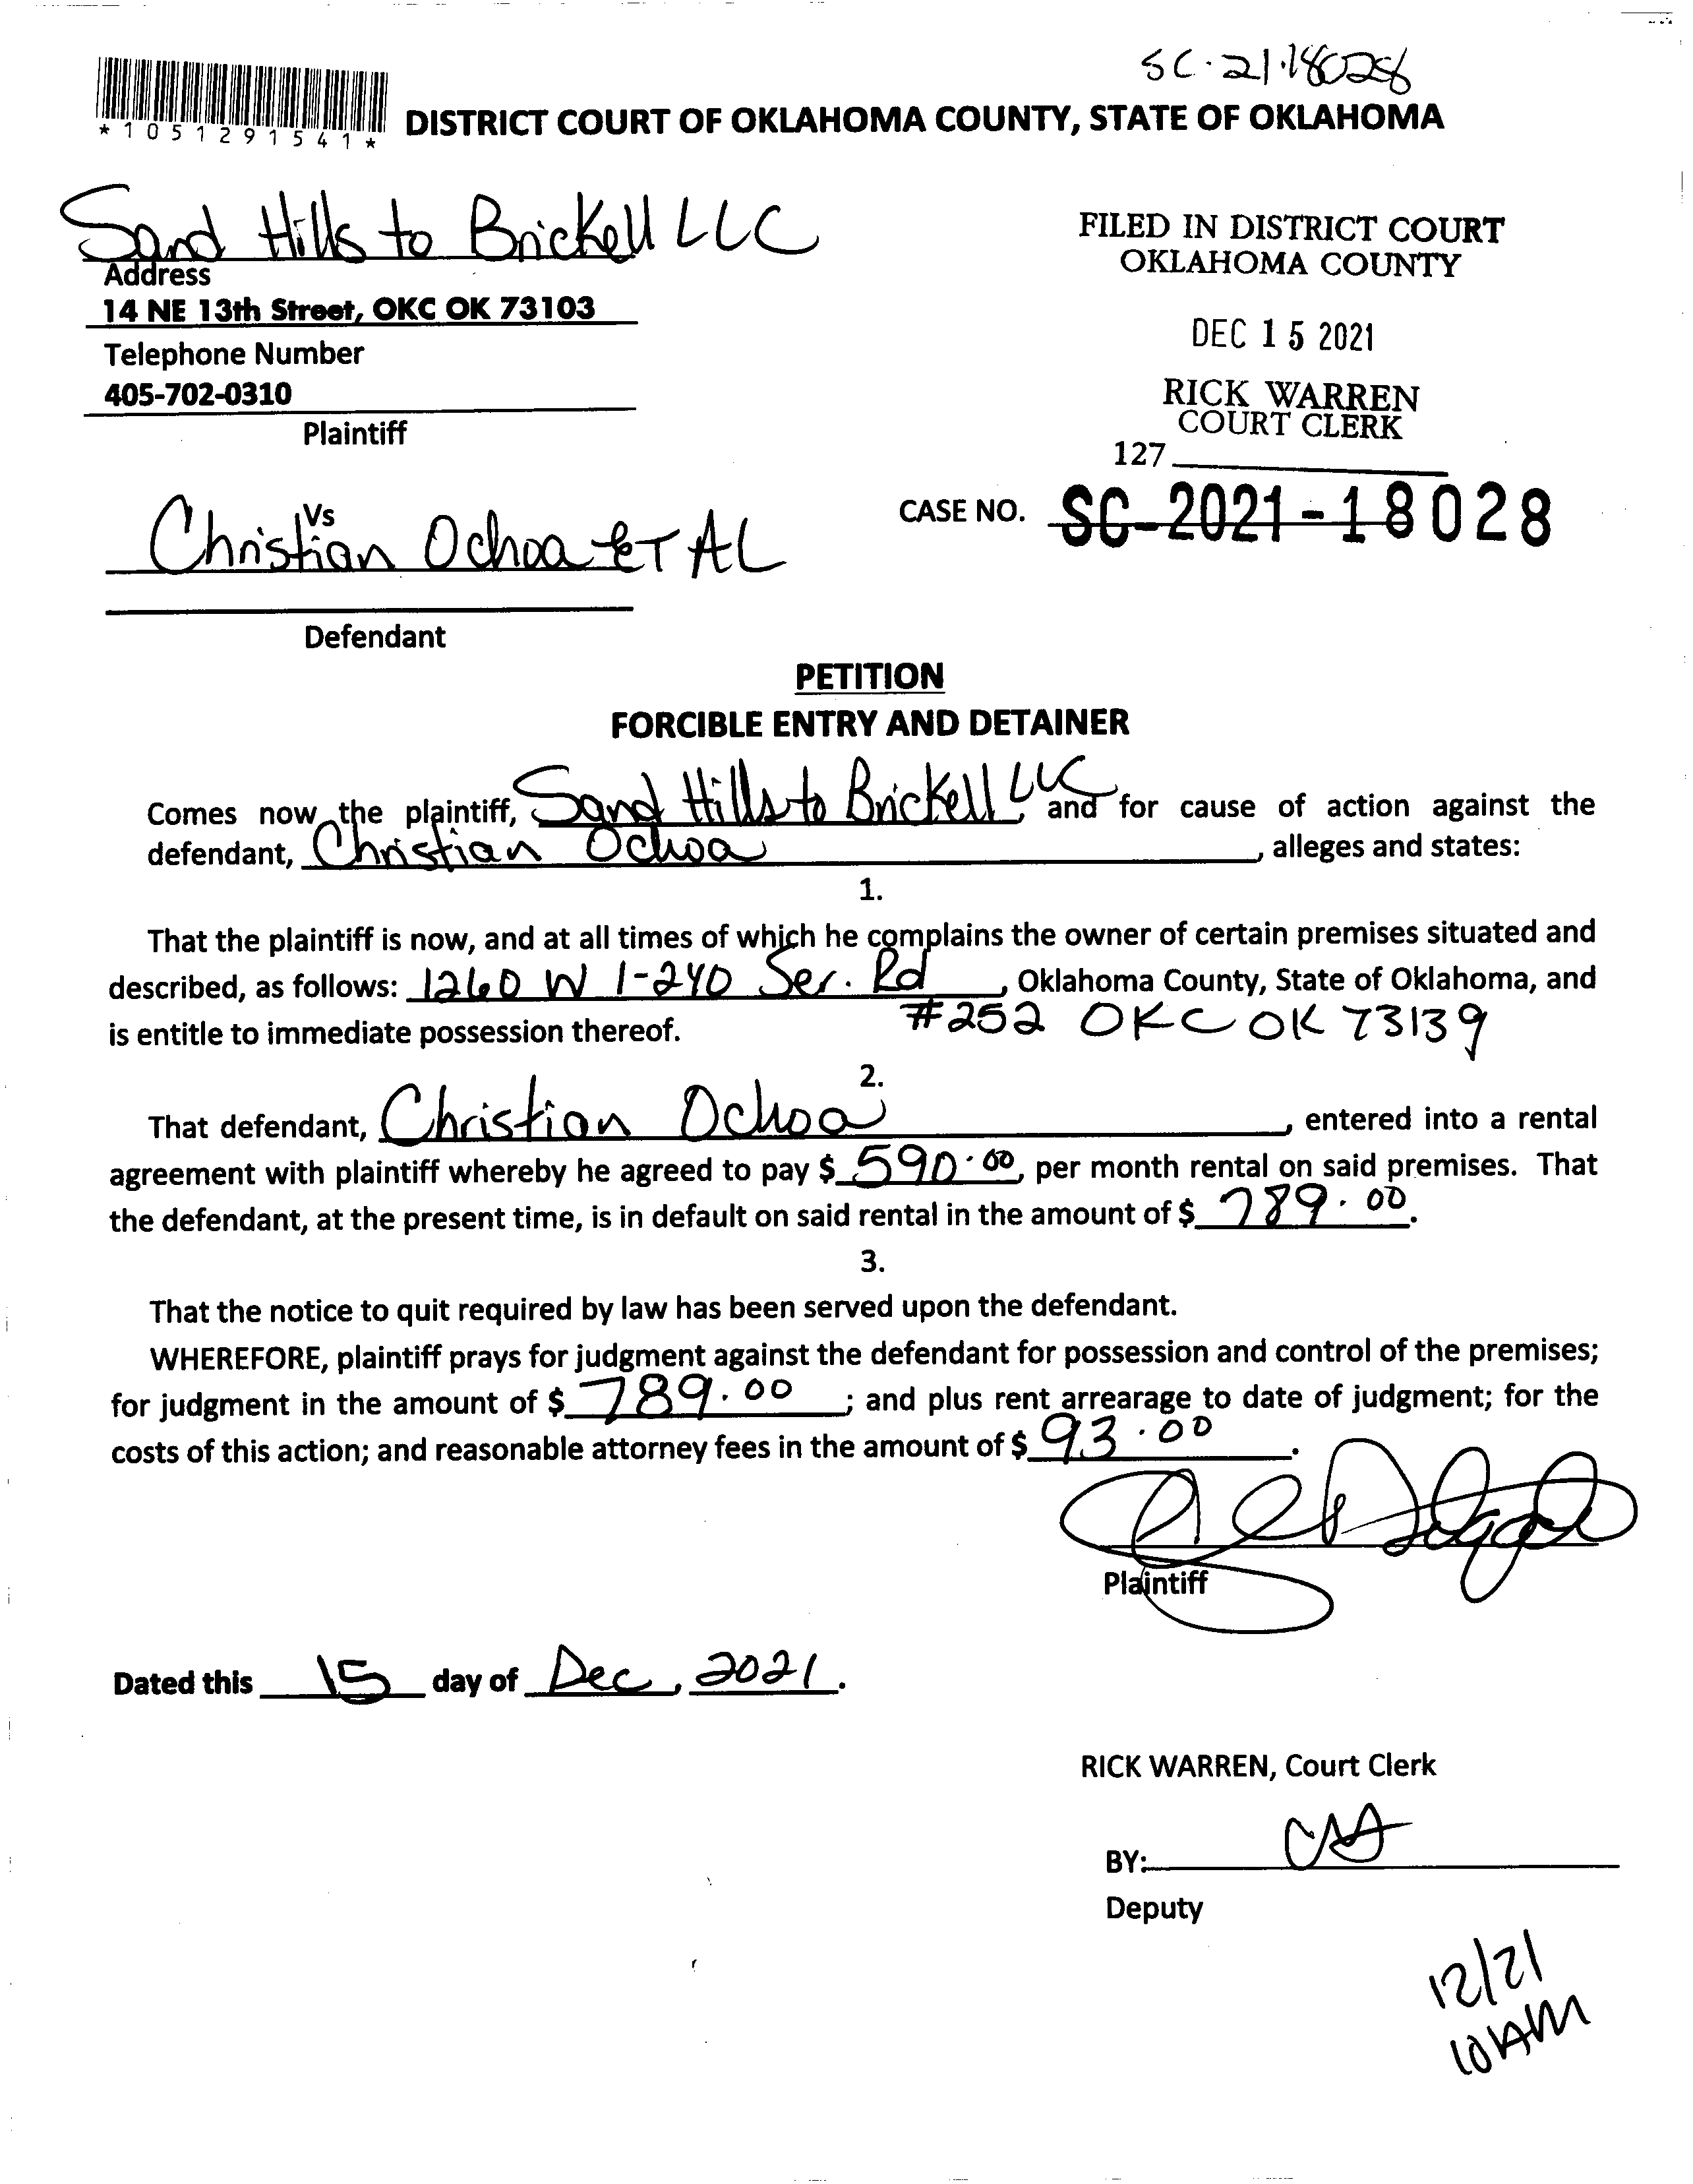 SC-21-18028
*1051291541*
DISTRICT COURT OF OKLAHOMA COUNTY, STATE OF OKLAHOMA
Sand Hills to Brickell LLC
Address
14 NE 13th Street, OKC OK 73103
Telephone Number
405-702-0310
Plaintiff
FILED IN DISTRICT COURT
OKLAHOMA COUNTY
DEC 15 2021
RICK WARREN
COURT CLERK
127
Vs
Christian Ochoa ET AL
CASE NO. SC-2021-18028
Defendant
PETITION
FORCIBLE ENTRY AND DETAINER
Comes now the plaintiff, Sand Hills to Brickell LLC, and for cause of action against the
defendant, Christian Ochoa, alleges and states:
1.
That the plaintiff is now, and at all times of which he complains the owner of certain premises situated and
described, as follows: 1260 W I-240 Ser. Rd, Oklahoma County, State of Oklahoma, and
is entitle to immediate possession thereof. #252 OKC OK 73139
2.
That defendant, Christian Ochoa, entered into a rental
agreement with plaintiff whereby he agreed to pay $ 590.00, per month rental on said premises. That
the defendant, at the present time, is in default on said rental in the amount of $ 789.00.
3.
That the notice to quit required by law has been served upon the defendant.
WHEREFORE, plaintiff prays for judgment against the defendant for possession and control of the premises;
for judgment in the amount of $ 789.00; and plus rent arrearage to date of judgment; for the
costs of this action; and reasonable attorney fees in the amount of $ 93.00.
Plaintiff
Dated this 15 day of Dec, 2021.
RICK WARREN, Court Clerk
BY:
Deputy
12/21
10AM